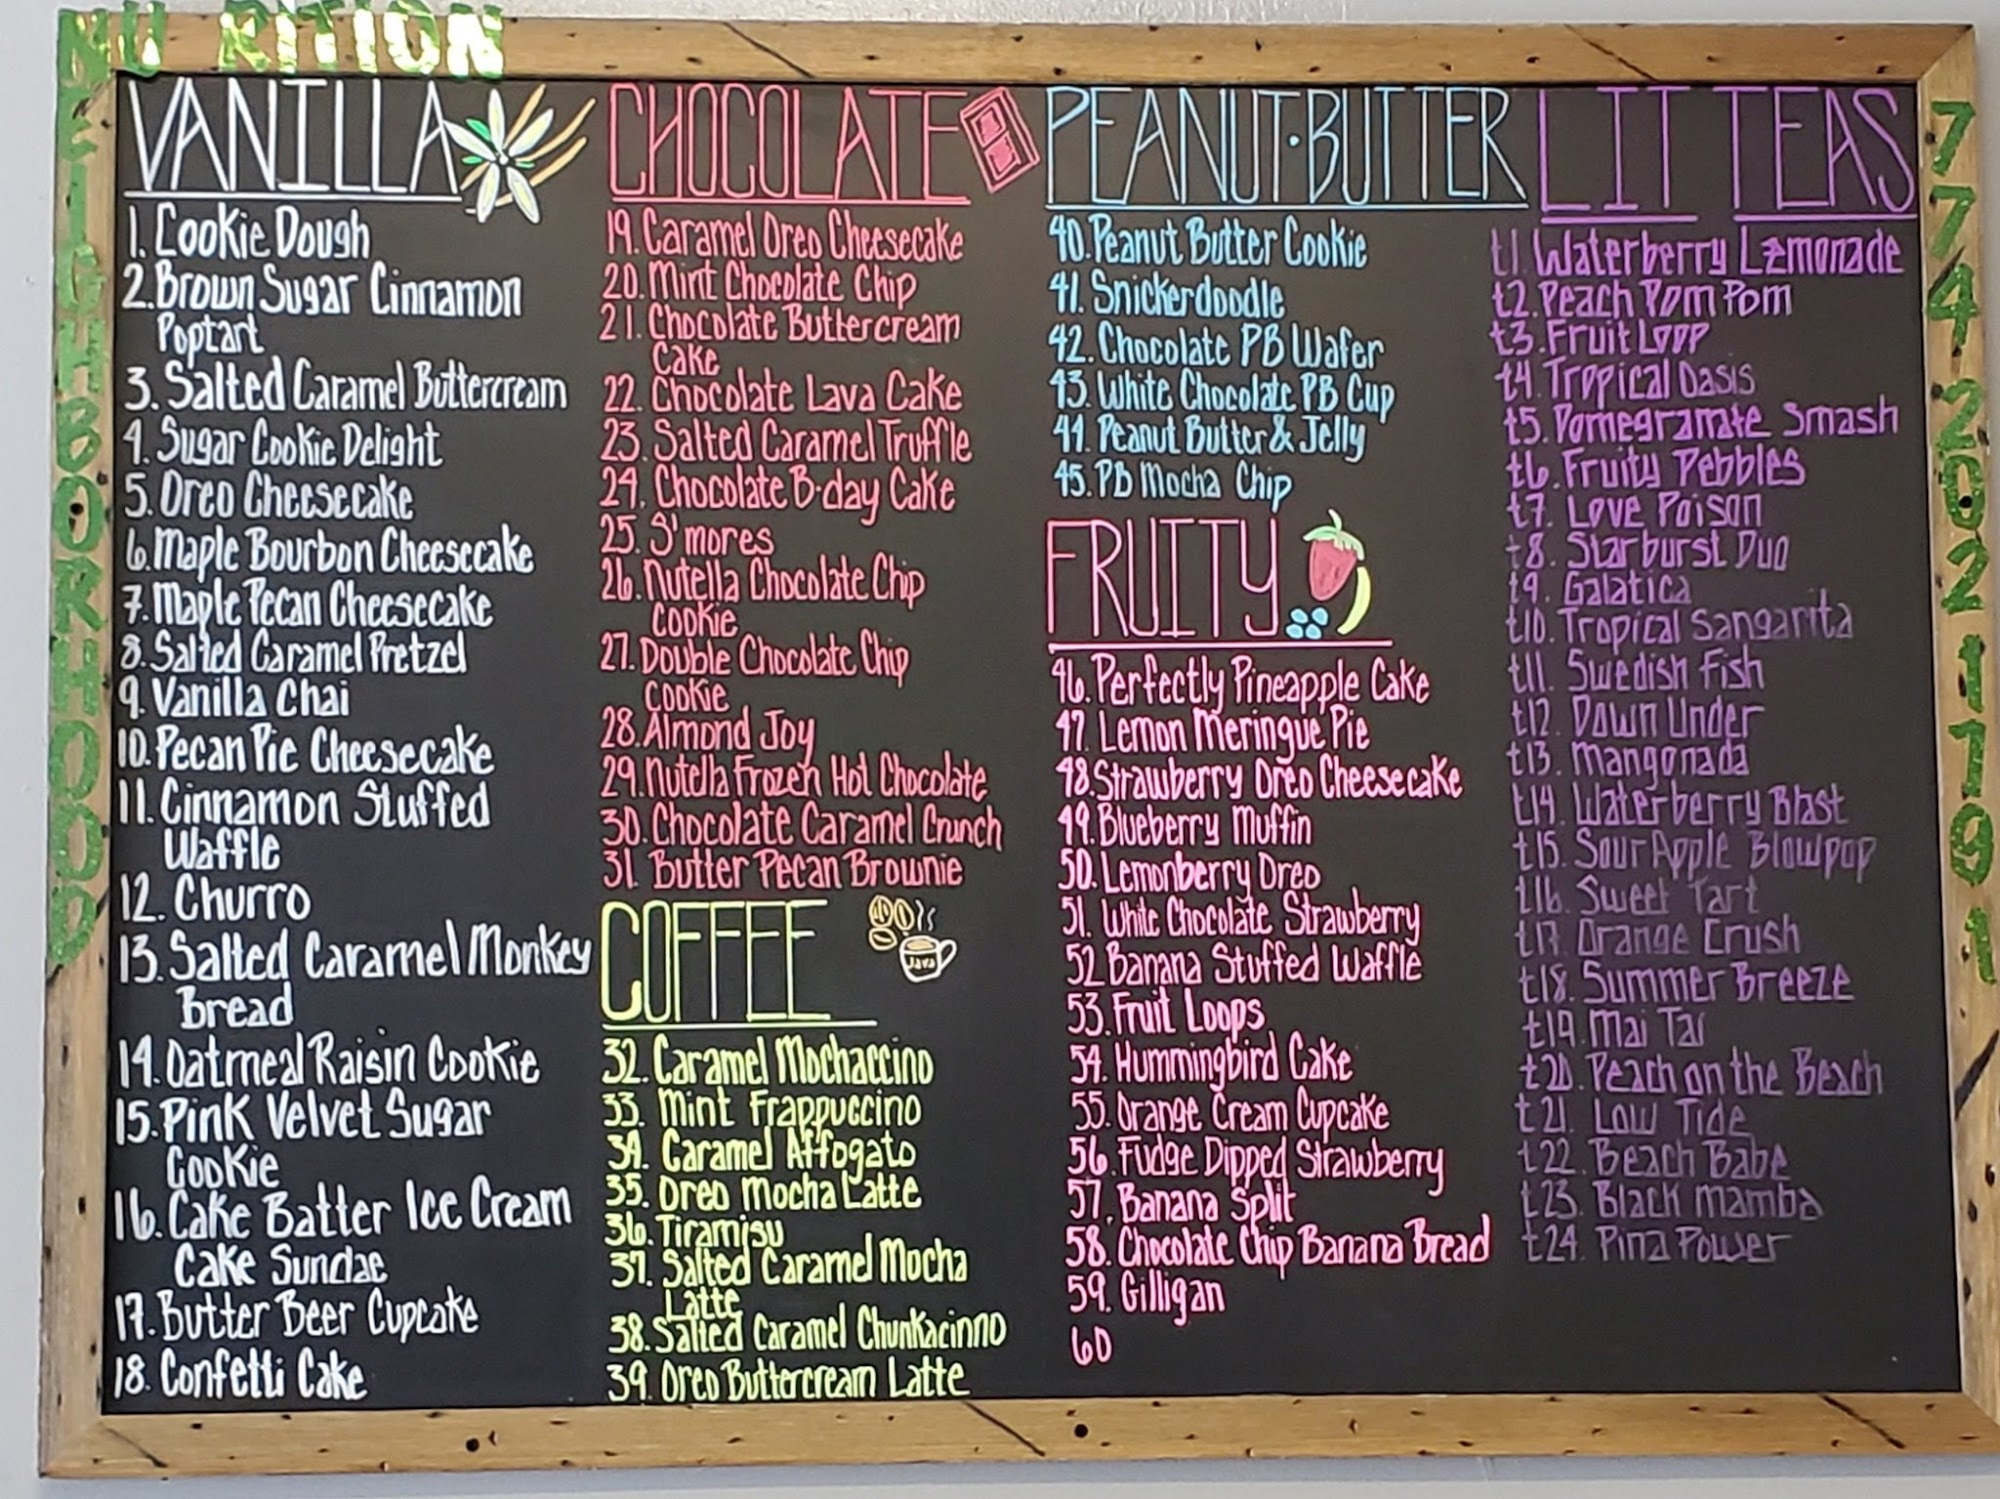 NU RITION
NEIGHBORHOOD
VANILLA
1. Cookie Dough
2. Brown Sugar Cinnamon
Poptart
3. Salted Caramel Buttercream
4. Sugar Cookie Delight
5. Oreo Cheesecake
6. Maple Bourbon Cheesecake
7. Maple Pecan Cheesecake
8. Salted Caramel Pretzel
9. Vanilla Chai
10. Pecan Pie Cheesecake
11. Cinnamon Stuffed
Waffle
12. Churro
13. Salted Caramel Monkey
Bread
14. Oatmeal Raisin Cookie
15. Pink Velvet Sugar
Cookie
16. Cake Batter Ice Cream
Cake Sundae
17. Butter Beer Cupcake
18. Confetti Cake
CHOCOLATE
19. Caramel Oreo Cheesecake
20. Mint Chocolate Chip
21. Chocolate Buttercream
Cake
22. Chocolate Lava Cake
23. Salted Caramel Truffle
24. Chocolate B-day Cake
25. S'mores
26. Nutella Chocolate Chip
Cookie
27. Double Chocolate Chip
Cookie
28. Almond Joy
29. Nutella Frozen Hot Chocolate
30. Chocolate Caramel Crunch
31. Butter Pecan Brownie
COFFEE
Java
32. Caramel Mochaccino
33. Mint Frappuccino
34. Caramel Affogato
35. Oreo Mocha Latte
36. Tiramisu
37. Salted Caramel Mocha
Latte
38. Salted Caramel Chunkacinno
39. Oreo Buttercream Latte
PEANUT·BUTTER
40. Peanut Butter Cookie
41. Snickerdoodle
42. Chocolate PB Wafer
43. White Chocolate PB Cup
44. Peanut Butter & Jelly
45. PB Mocha Chip
FRUITY
46. Perfectly Pineapple Cake
47. Lemon Meringue Pie
48. Strawberry Oreo Cheesecake
49. Blueberry Muffin
50. Lemonberry Oreo
51. White Chocolate Strawberry
52 Banana Stuffed Waffle
53. Fruit Loops
54. Hummingbird Cake
55. Orange Cream Cupcake
56. Fudge Dipped Strawberry
57. Banana Split
58. Chocolate Chip Banana Bread
59. Gilligan
60
LIT TEAS
t1. Waterberry Lemonade
t2. Peach Pom Pom
t3. Fruit Loop
t4. Tropical Oasis
t5. Pomegranate Smash
t6. Fruity Pebbles
t7. Love Poison
t8. Starburst Duo
t9. Galatica
t10. Tropical Sangarita
t11. Swedish Fish
t12. Down Under
t13. Mangonada
t14. Waterberry Blast
t15. Sour Apple Blowpop
t16. Sweet Tart
t17 Orange Crush
t18. Summer Breeze
t19. Mai Tai
t20. Peach on the Beach
t21. Low Tide
t22. Beach Babe
t23. Black Mamba
t24. Pina Power
7742021191